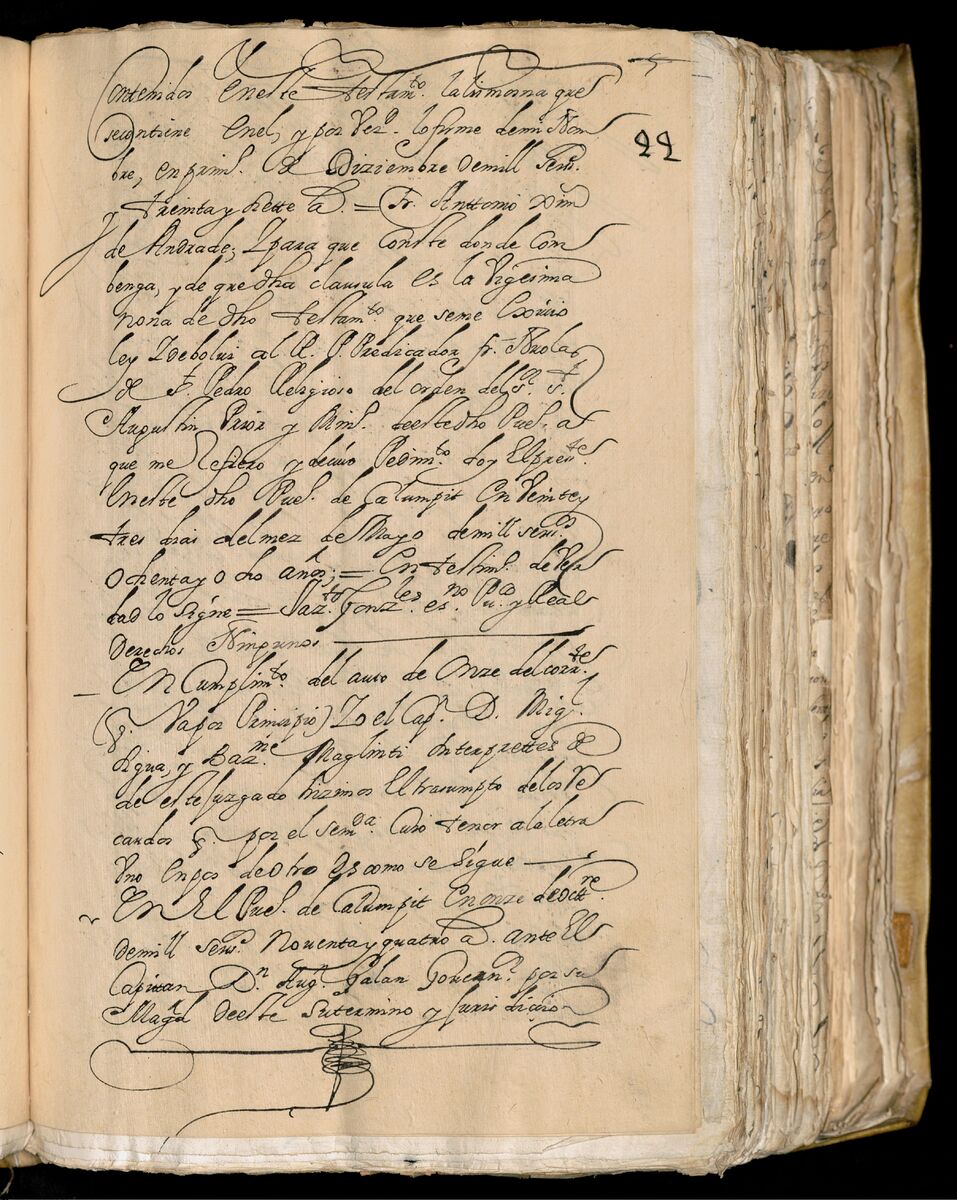 Contenidos En este testamto. la limosna que
se contiene En el, y por Verd. lo firme de mi Nom
bre, en prim. de Diziembre de mill seiss.
y treinta y siette a. = Fr. Anttonio Xim
de Andrade; Y para que Conste donde Com
benga, y de que dha clausula es la Vigesima
nona de dho testamto. que se me Exsivio
ley Y debolvi al R. P. Predicador fr. Nicolas
de S. Pedro Religioso del orden del Sor. S.
Augustin Prior y Mino. de este dho Pueo. a
que me Refiero y de cuio Pedimto. doy El presete.
En este dho Pueo. de Calumpit En Veinte y
tres dias del mez de Mayo de mill seiss.
Ochenta y Ocho años; = En testimo. de Ver
dad lo signe = Gonzles. esno. Puco. y Real
Derechos Ningunos
En Cumplimto. del auto de Onze del corrte.
(q. Va por Principio) Yo el Cap. D. Mig.
Sigua, y Bazme. Maglinti Interprettes de
de este Juzgado hizimos El trasumpto de los Re
caudos q. por el semda. Cuio tenor a la letra
Uno en pos de otro es como se sigue
En El Pueo. de Calumpit En onze de octre.
de mill seiss. Noventa y quatro a. ante El
Capitan Dn. Augn. Galan Governr. por su
Magd. de este su termino y Jurisdiccion